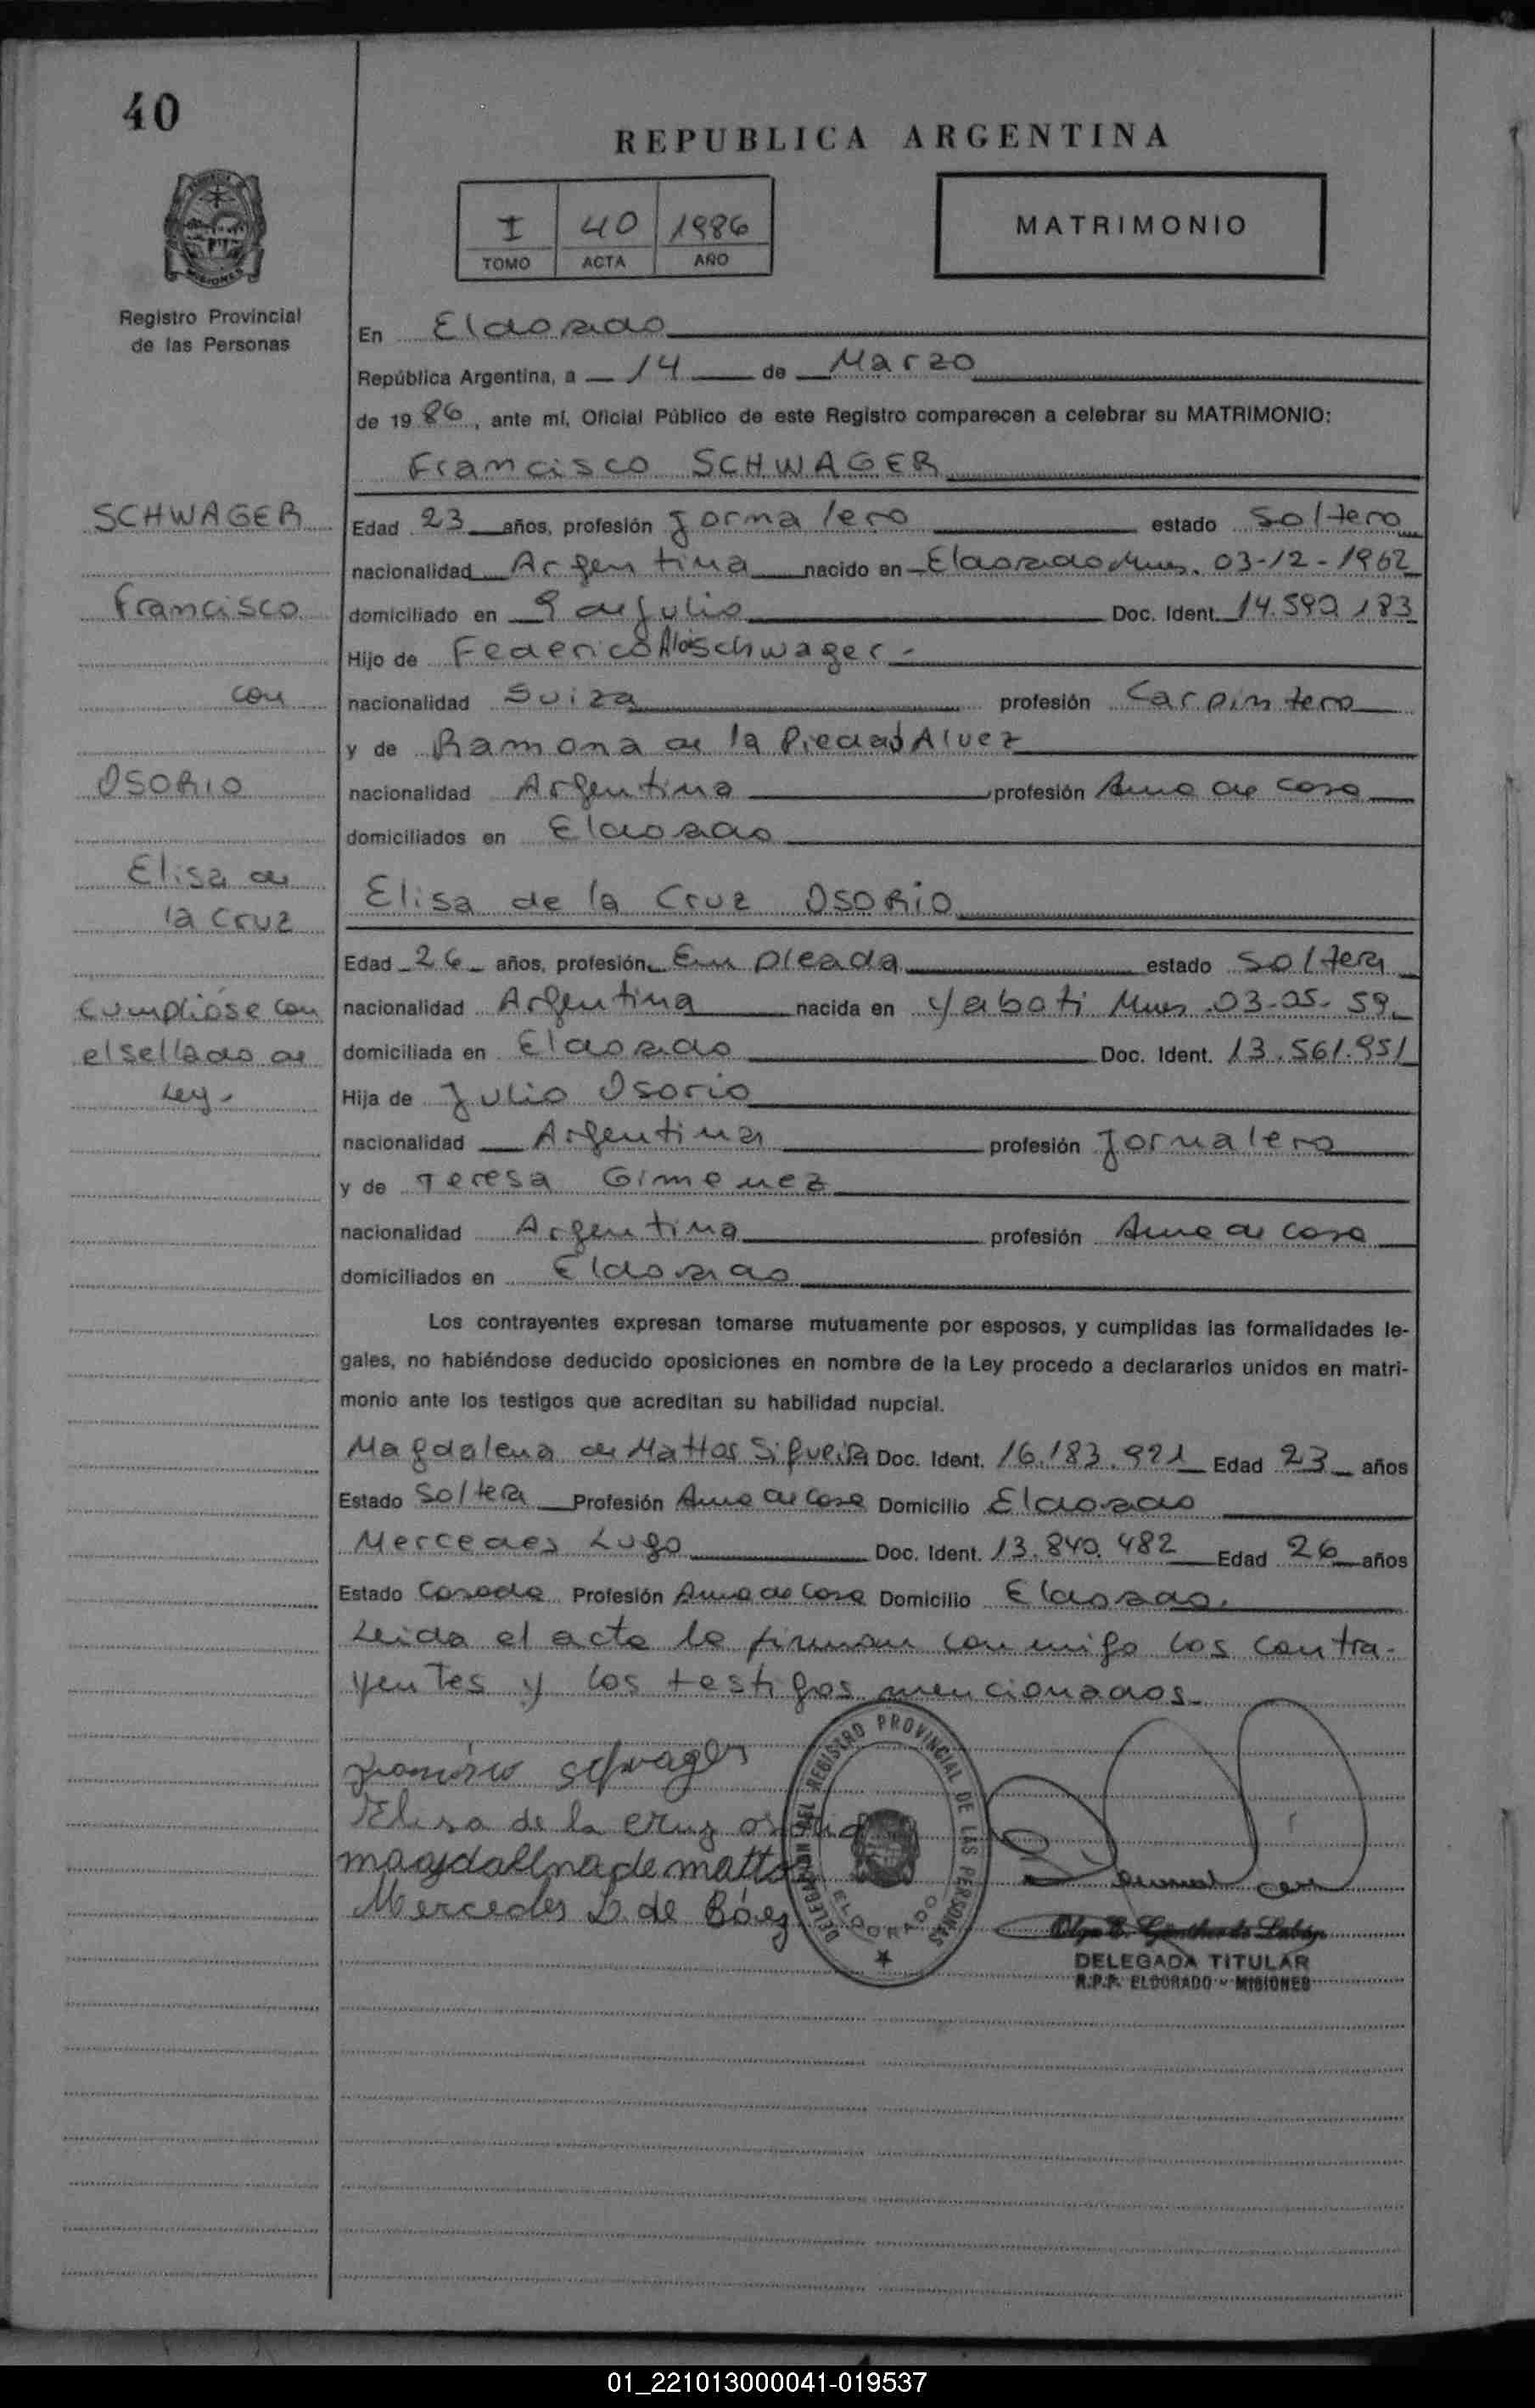 40
REPUBLICA ARGENTINA
MISIONES
Registro Provincial
de las Personas
I 40 1986
TOMO ACTA AÑO
MATRIMONIO
En Eldorado
República Argentina, a 14 de Marzo
de 1986, ante mí, Oficial Público de este Registro comparecen a celebrar su MATRIMONIO:
Francisco SCHWAGER
SCHWAGER
Francisco
con
OSORIO
Elisa de
la Cruz
Cumplióse con
el sellado de
Ley.
Edad 23 años, profesión Jornalero estado Soltero
nacionalidad Argentina nacido en Eldorado Mnes. 03-12-1962
domiciliado en 9 de Julio Doc. Ident. 14.590.183
Hijo de Federico Schwager-
nacionalidad Suiza profesión Carpintero
y de Ramona de la Piedad Alvez
nacionalidad Argentina profesión Ama de casa
domiciliados en Eldorado
Elisa de la Cruz OSORIO
Edad 26 años, profesión Empleada estado Soltera
nacionalidad Argentina nacida en Yaboti Mnes .03-05-59
domiciliada en Eldorado Doc. Ident. 13.561.951
Hija de Julio Osorio
nacionalidad Argentina profesión Jornalero
y de Teresa Gimenez
nacionalidad Argentina profesión Ama de casa
domiciliados en Eldorado
Los contrayentes expresan tomarse mutuamente por esposos, y cumplidas las formalidades le-
gales, no habiéndose deducido oposiciones en nombre de la Ley procedo a declararlos unidos en matri-
monio ante los testigos que acreditan su habilidad nupcial.
Magdalena de Mattos Siqueira Doc. Ident. 16.183.921 Edad 23 años
Estado Soltera Profesión Ama de Casa Domicilio Eldorado
Mercedes Lugo Doc. Ident. 13.840.482 Edad 26 años
Estado Casada Profesión Ama de Casa Domicilio Eldorado.
Leida el acta la firman conmigo los contra-
yentes y los testigos mencionados.
Francisco Schwager
Elisa de la Cruz osorio
magdallna de mattos
Mercedes L. de Báez
DELEGACION DEL REGISTRO PROVINCIAL DE LAS PERSONAS
ELDORADO
DELEGADA TITULAR
R.P.P. ELDORADO - MISIONES
01_221013000041-019537